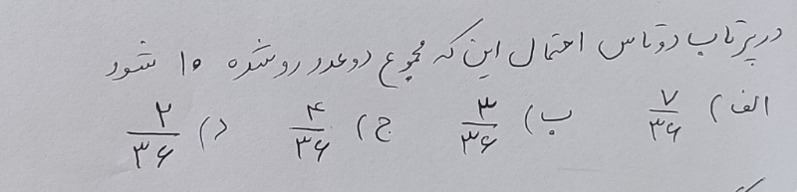 در پرتاب دو تاس احتمال این که مجموع دو عدد رو شده ۱۰ شود
الف) ۷/۳۶ ب) ۳/۳۶ ج) ۴/۳۶ د) ۲/۳۶